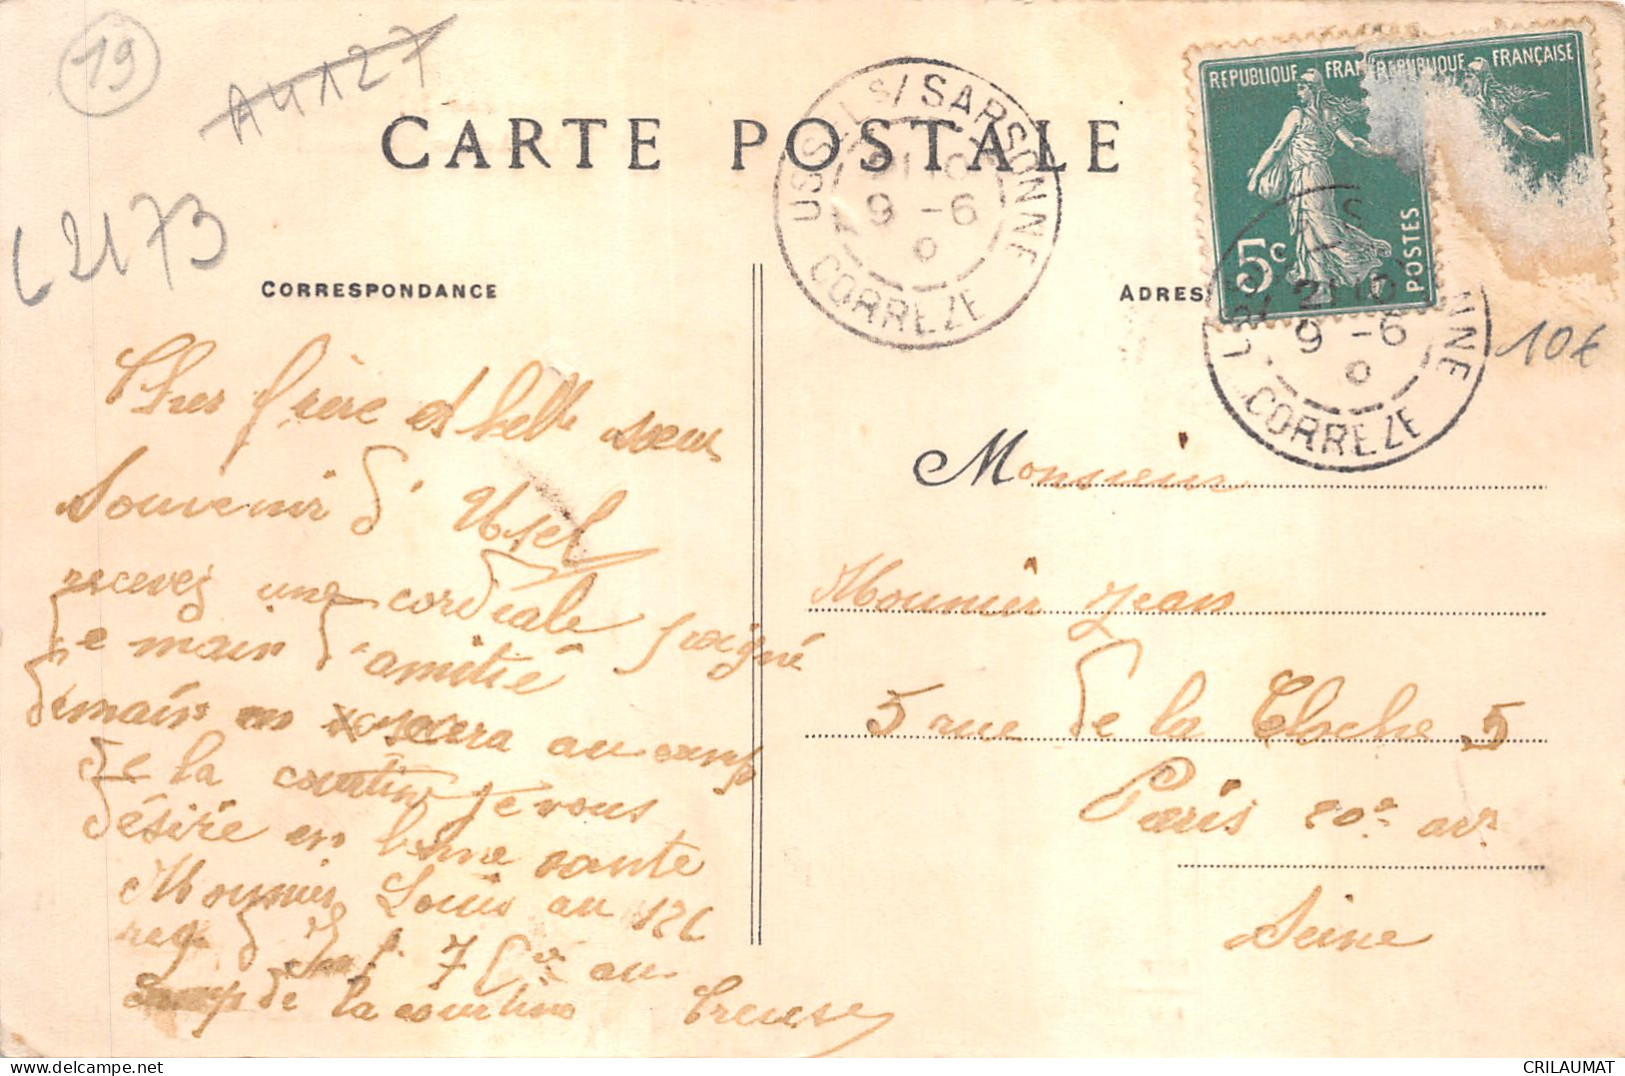 19
A4127
L2173
CARTE POSTALE
USSEL S/ SARSONNE
21 10
9 - 6
0
CORREZE
REPUBLIQUE FRAN
REPUBLIQUE FRANÇAISE
5c
POSTES
21 10
9 - 6
0
CORREZE
10€
CORRESPONDANCE
ADRES
Cher frère et belle soeur
Souvenir d'Ussel
recevez une cordiale poigné
de main d'amitié
demain en au camp
de la courtine je vous
désire en bonne sante
Mounier Louis au 126
reg d' Inf. 7 Cie au
camp de la courtine Creuse
Monsieur
Mounier Jean
5 rue de la Cloche 5
Paris 20e arr
Seine
CRILAUMAT